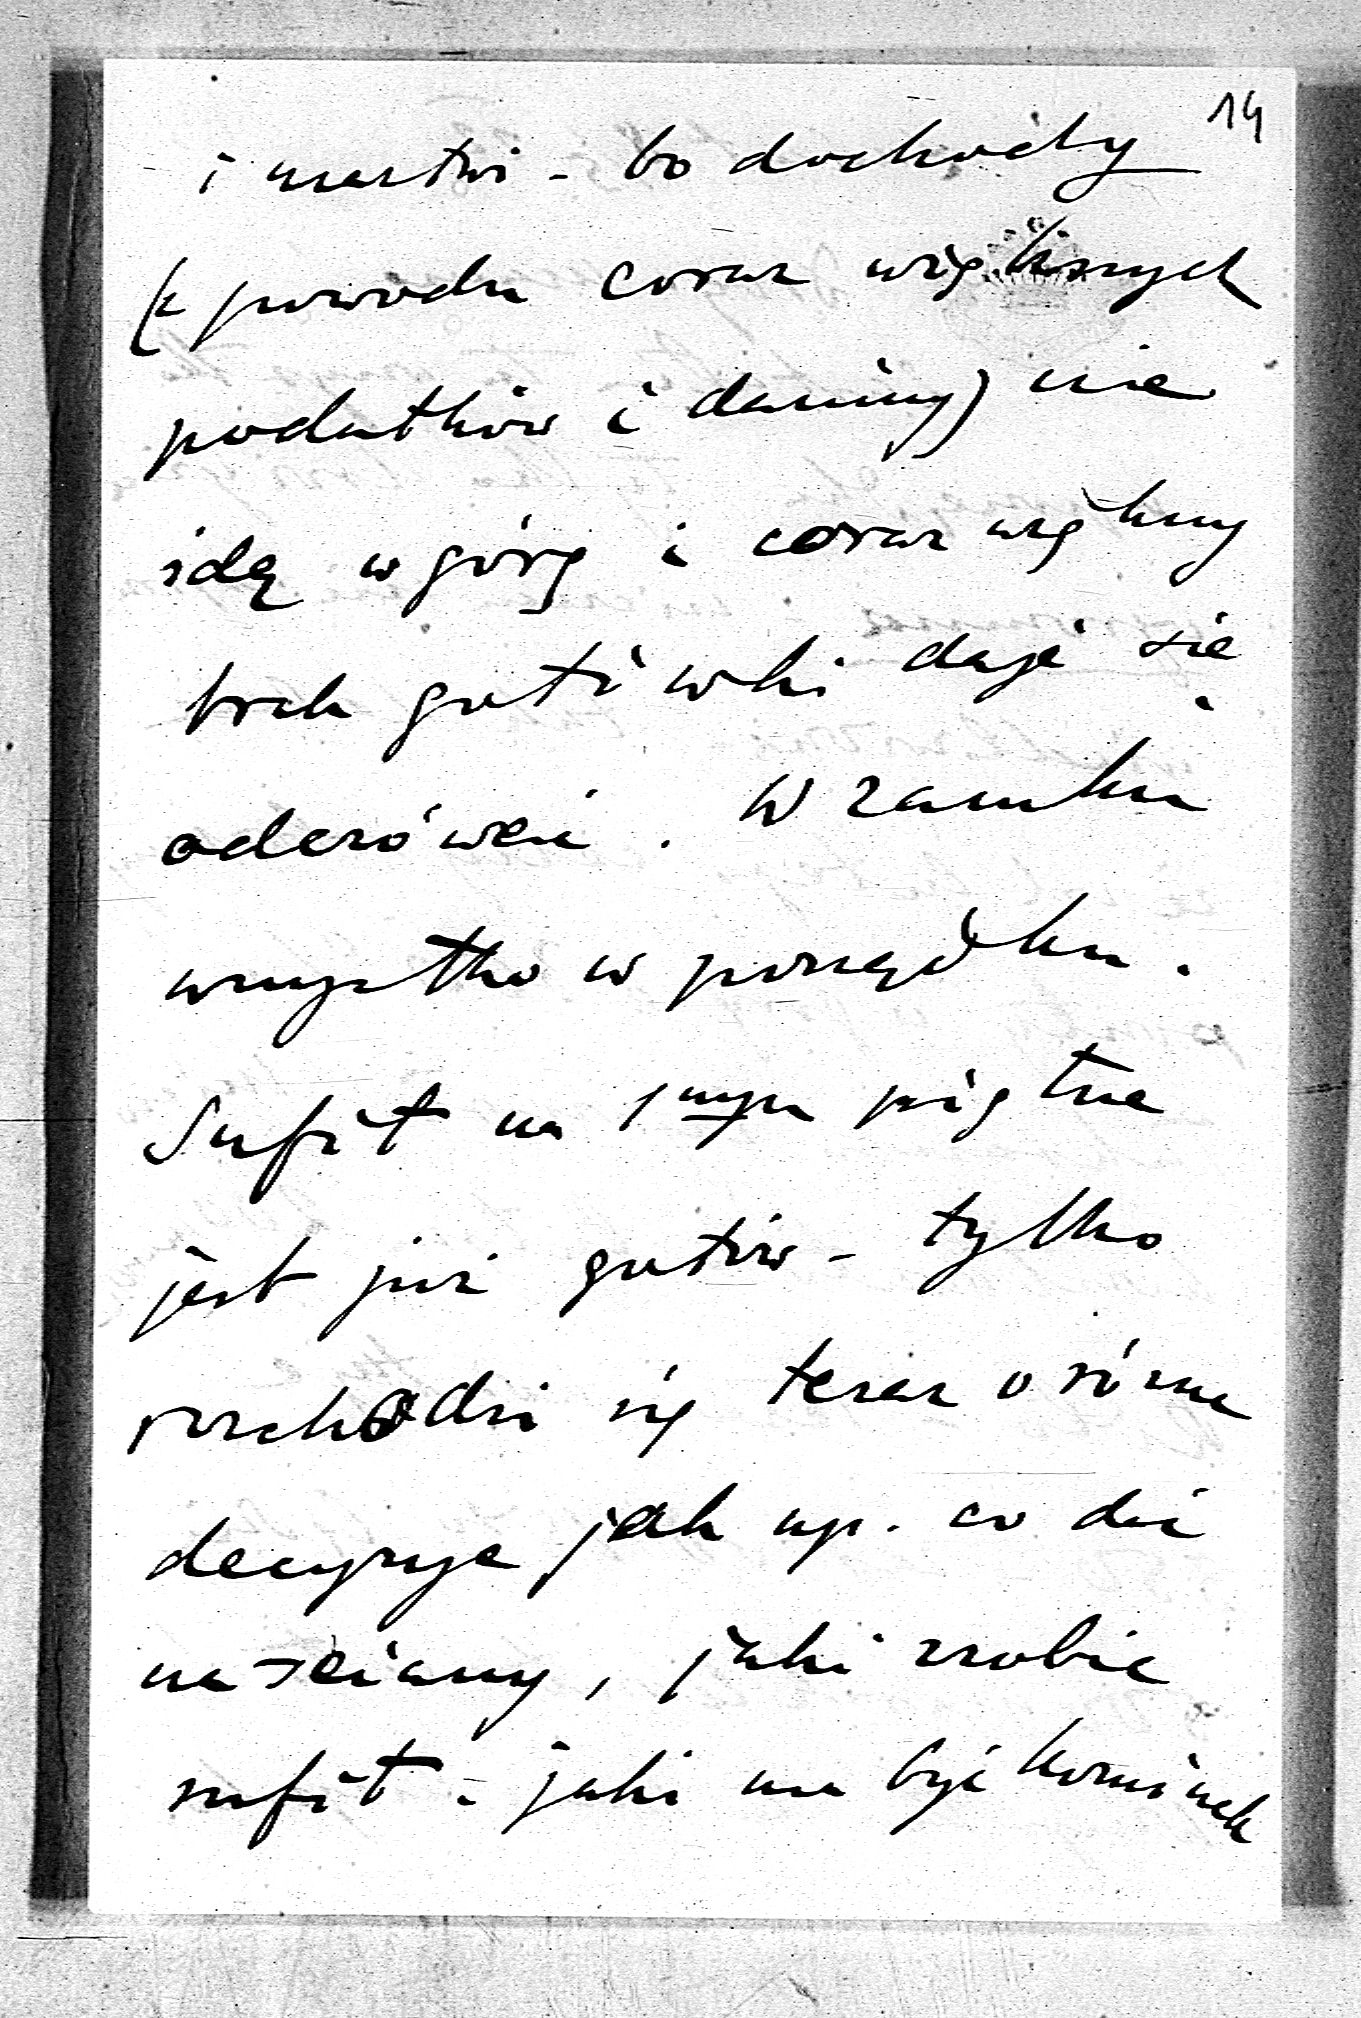 14
i martwi - bo dochody
(z powodu coraz większych
podatków i daniny) nie
idą w górę i coraz większy
brak gotówki daje się
odczówać. W zamku
wszystko w porządku.
Sufit na 1szym piętrze
jest już gotów - tylko
rozchodzi się teraz o różne
decyzye jak np. co dać
na ściany, jaki zrobić
sufit - jaki ma być kominek